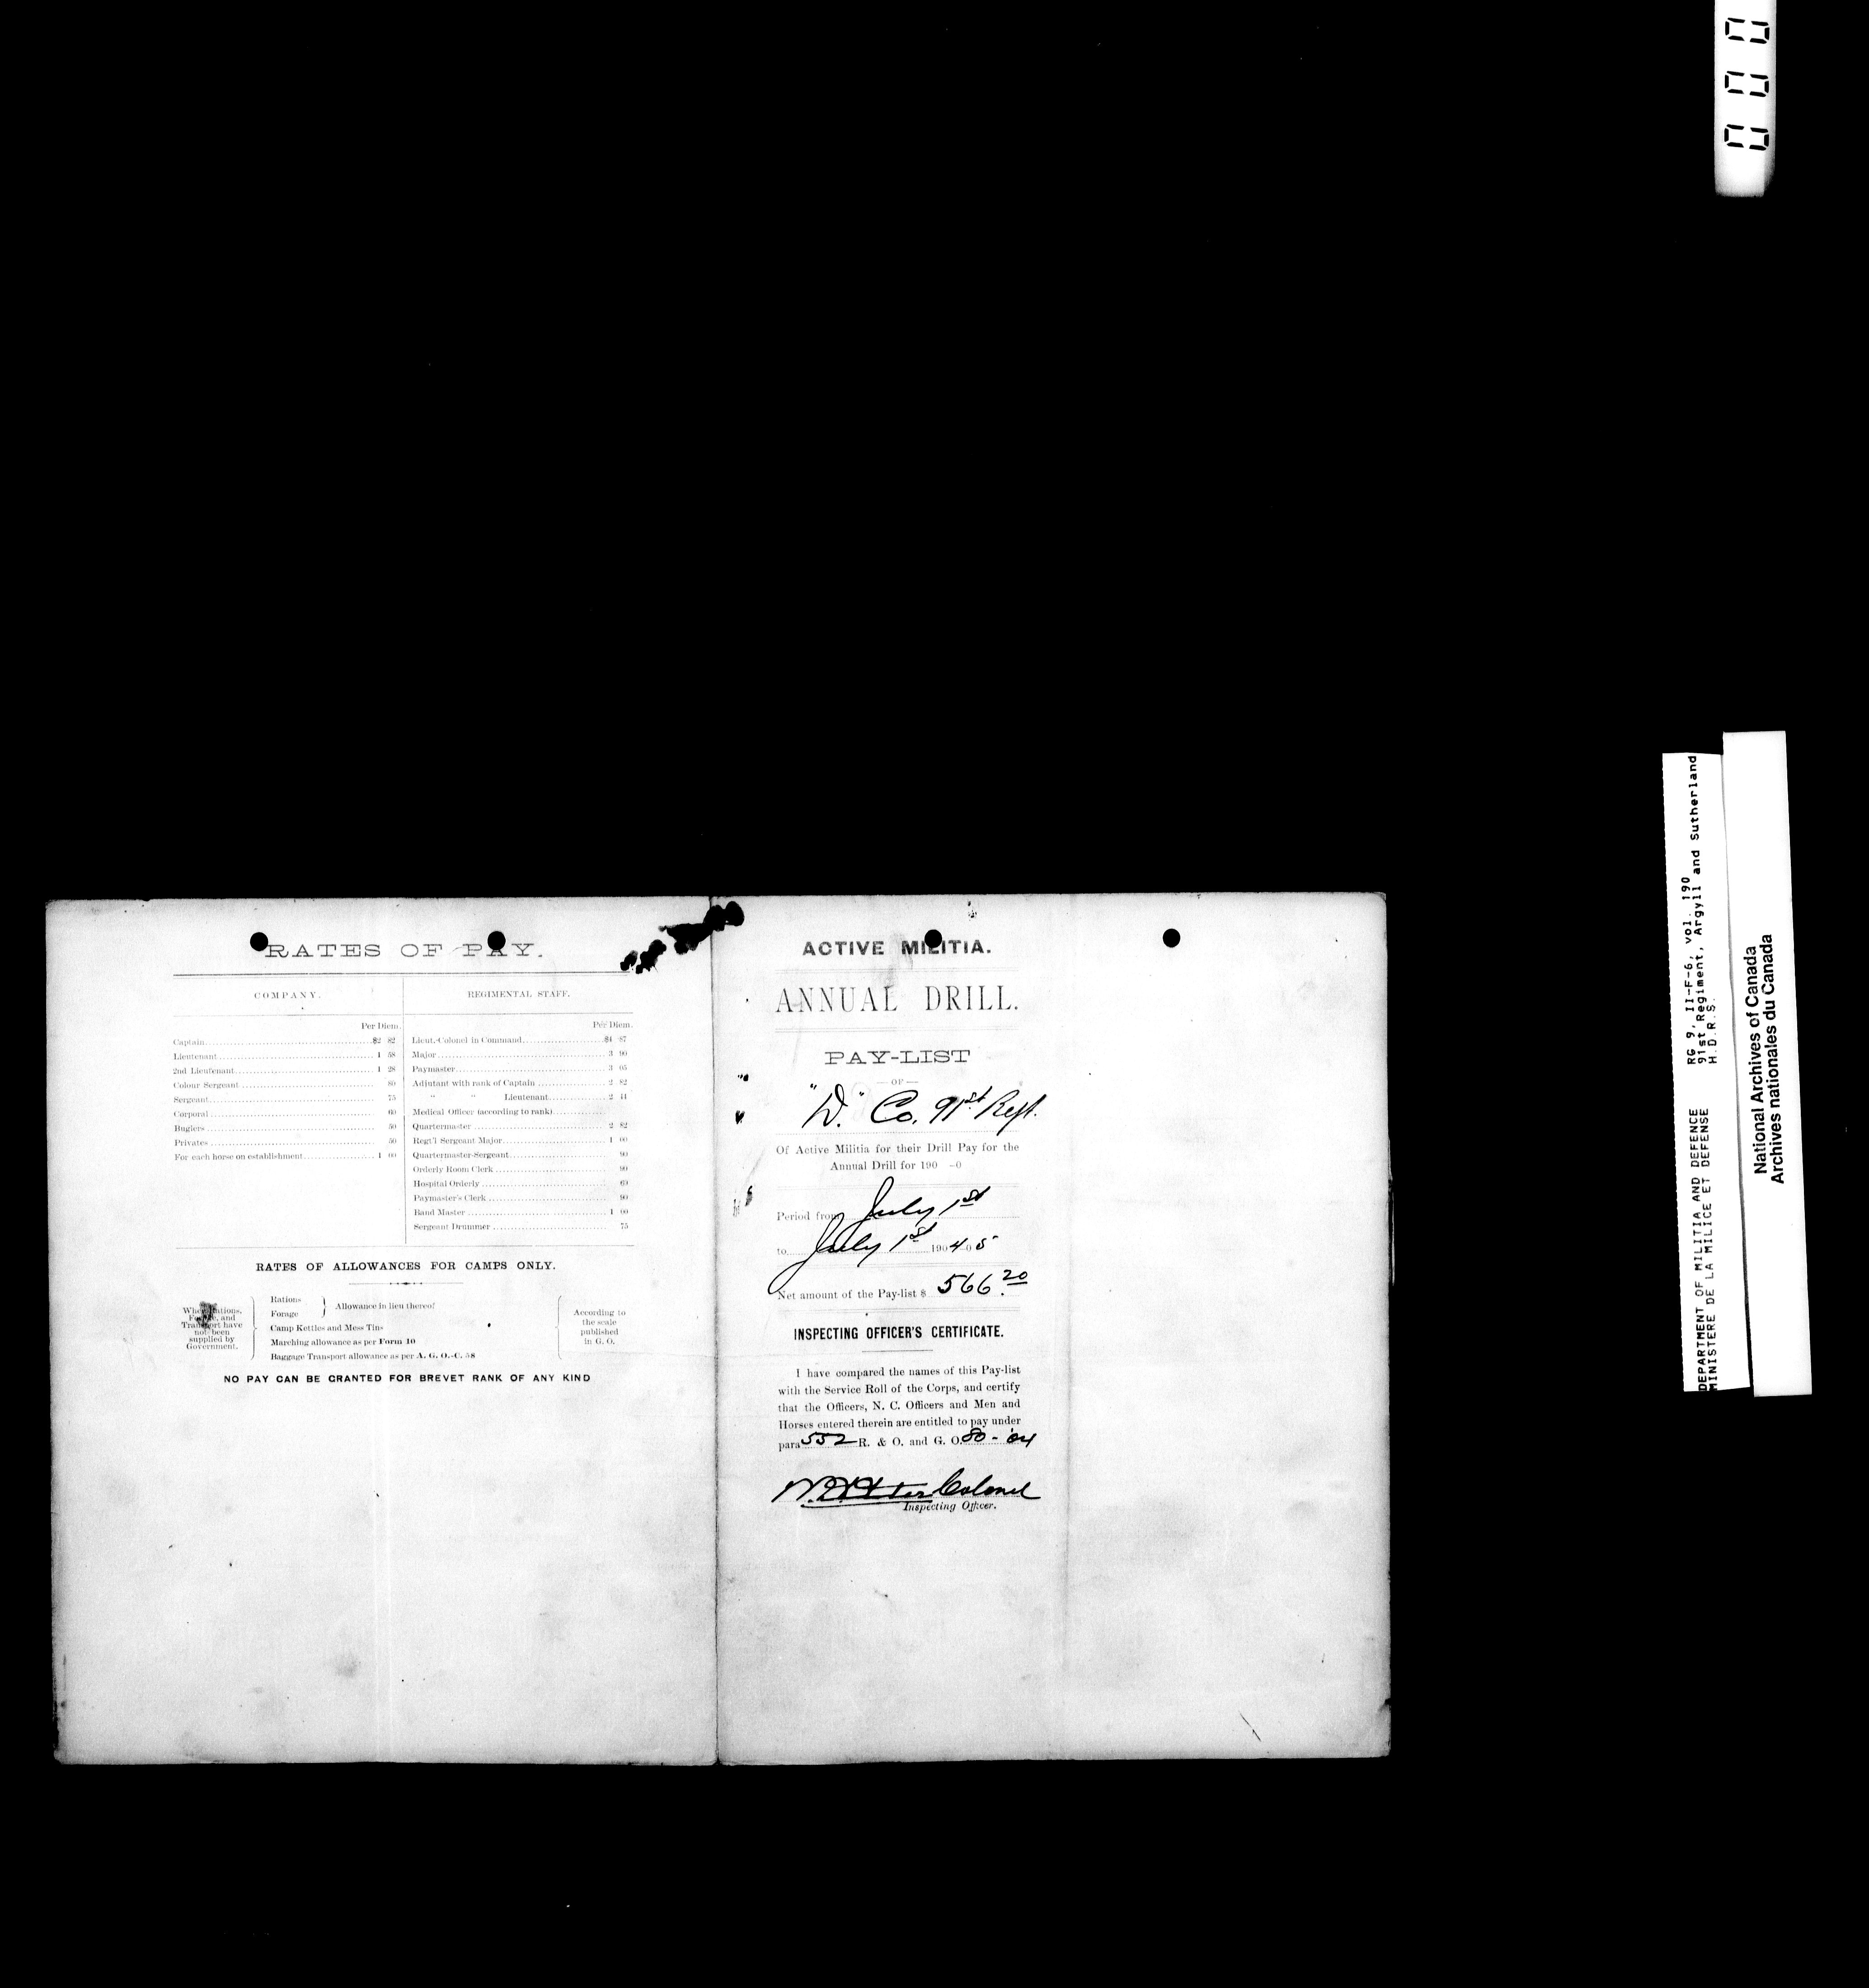 RATES OF PAY.
COMPANY.
Per Diem.
Captain $2 82
Lieutenant 1 58
2nd Lieutenant 1 28
Colour Sergeant 80
Sergeant 75
Corporal 60
Buglers 50
Privates 50
For each horse on establishment 1 00
REGIMENTAL STAFF.
Per Diem.
Lieut.-Colonel in Command $4 87
Major 3 90
Paymaster 3 05
Adjutant with rank of Captain 2 82
" " Lieutenant 2 44
Medical Officer (according to rank)
Quartermaster 2 82
Regt'l Sergeant Major 1 00
Quartermaster-Sergeant 90
Orderly Room Clerk 90
Hospital Orderly 60
Paymaster's Clerk 90
Band Master 1 00
Sergeant Drummer 75
RATES OF ALLOWANCES FOR CAMPS ONLY.
When Rations,
Forage, and
Transport have
not been
supplied by
Government.
Rations
Forage
Allowance in lieu thereof
Camp Kettles and Mess Tins
Marching allowance as per Form 10
Baggage Transport allowance as per A. G. O.-C. 58
According to
the scale
published
in G. O.
NO PAY CAN BE GRANTED FOR BREVET RANK OF ANY KIND
ACTIVE MILITIA.
ANNUAL DRILL.
PAY-LIST
— OF —
"D." Co. 91st Regt.
Of Active Militia for their Drill Pay for the
Annual Drill for 190 -0
Period from July 1st
to July 1st 1904-05
Net amount of the Pay-list $ 566.20
INSPECTING OFFICER'S CERTIFICATE.
I have compared the names of this Pay-list
with the Service Roll of the Corps, and certify
that the Officers, N. C. Officers and Men and
Horses entered therein are entitled to pay under
para 552 R. & O. and G. O. 80 - 04
Colonel
Inspecting Officer.
000
DEPARTMENT OF MILITIA AND DEFENCE
MINISTERE DE LA MILICE ET DEFENSE
RG 9, II-F-6, vol. 190
91st Regiment, Argyll and Sutherland
H.D.R.S.
National Archives of Canada
Archives nationales du Canada